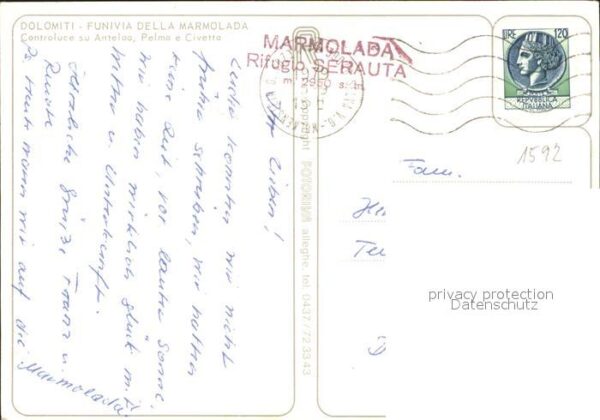 DOLOMITI - FUNIVIA DELLA MARMOLADA
Controluce su Antelao, Pelmo e Civetta
MARMOLADA
Rifugio SERAUTA
m. 2950 s.m.
LIRE 120
REPUBBLICA
ITALIANA
1592
Ihr Lieben!
Leider konnten wir nicht
früher schreiben, wir hatten
kein Zeit, vor lauter Sonne.
Wir haben wirklich Glück m.
Wetter u. Unterkunft.
Herzliche Grüße Franz u.
Renate
Heute waren wir auf die
Marmolada
copyright FOTORIVA alleghe tel. 0437/723343
Fam.
privacy protection
Datenschutz